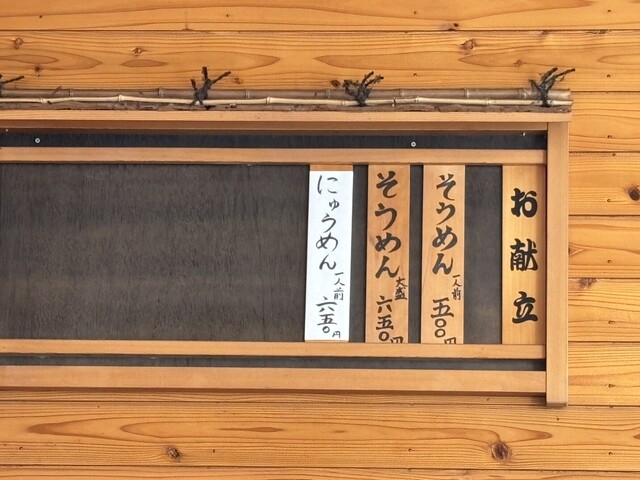 お献立
そうめん 一人前 五〇〇円
そうめん 大盛 六五〇円
にゅうめん 一人前 六五〇円